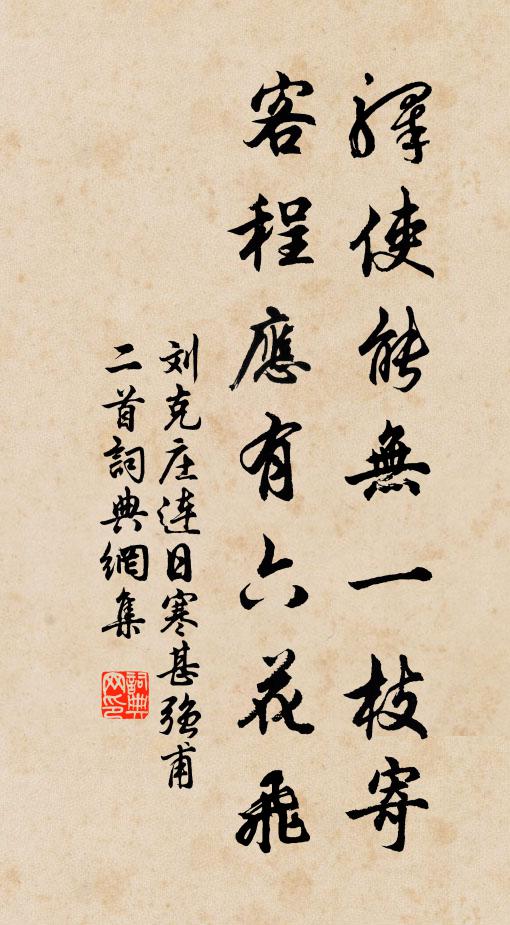 驛使能無一枝寄
客程應有六花飛
刘克庄連日寒甚強甫
二首詞典網集
詞典
网印